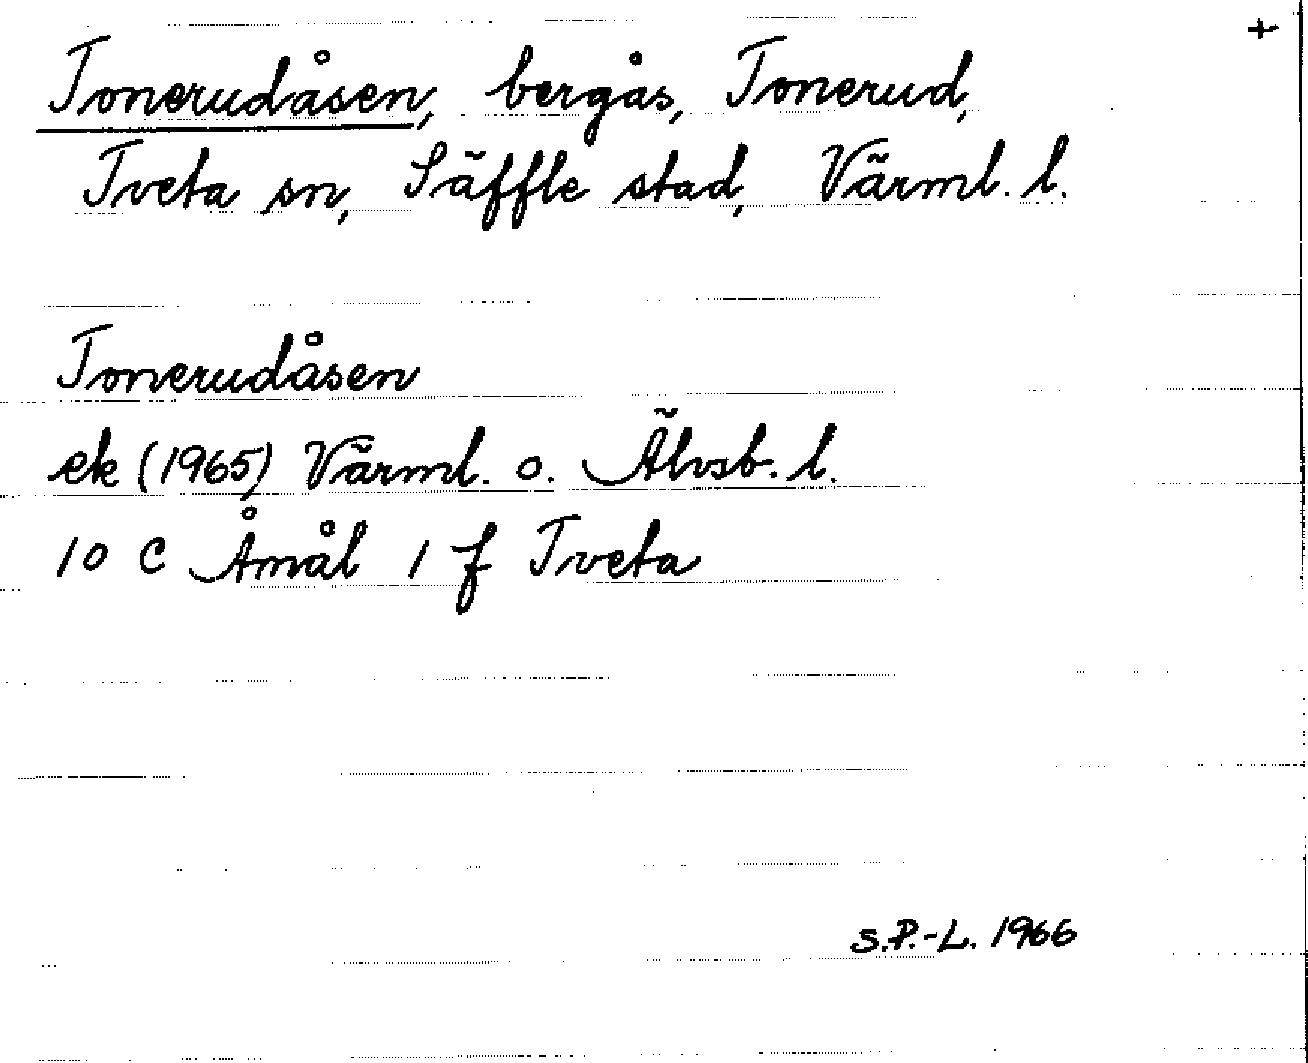 +
Tonerudåsen, bergås, Tonerud,
Tveta sn, Säffle stad, Värml. l.
Tonerudåsen
ek (1965) Värml. o. Älvsb. l.
10 C Åmål 1 f Tveta
S.P.-L. 1966